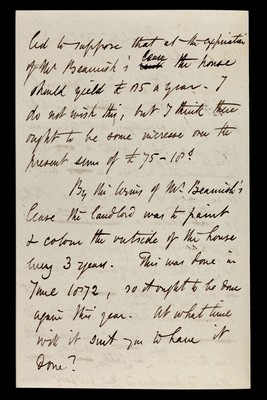 led to suppose that at the expiration
of Mr Beamish's lease the house
should yield £ 115 a year. I
do not wish this, but I think there
ought to be some increase over the
present sum of £75-10s.
By the terms of Mr Beamish's
lease the landlord was to paint
& colour the outside of the house
every 3 years. This was done in
June 1872, so it ought to be done
again this year. At what time
will it suit you to have it
done?